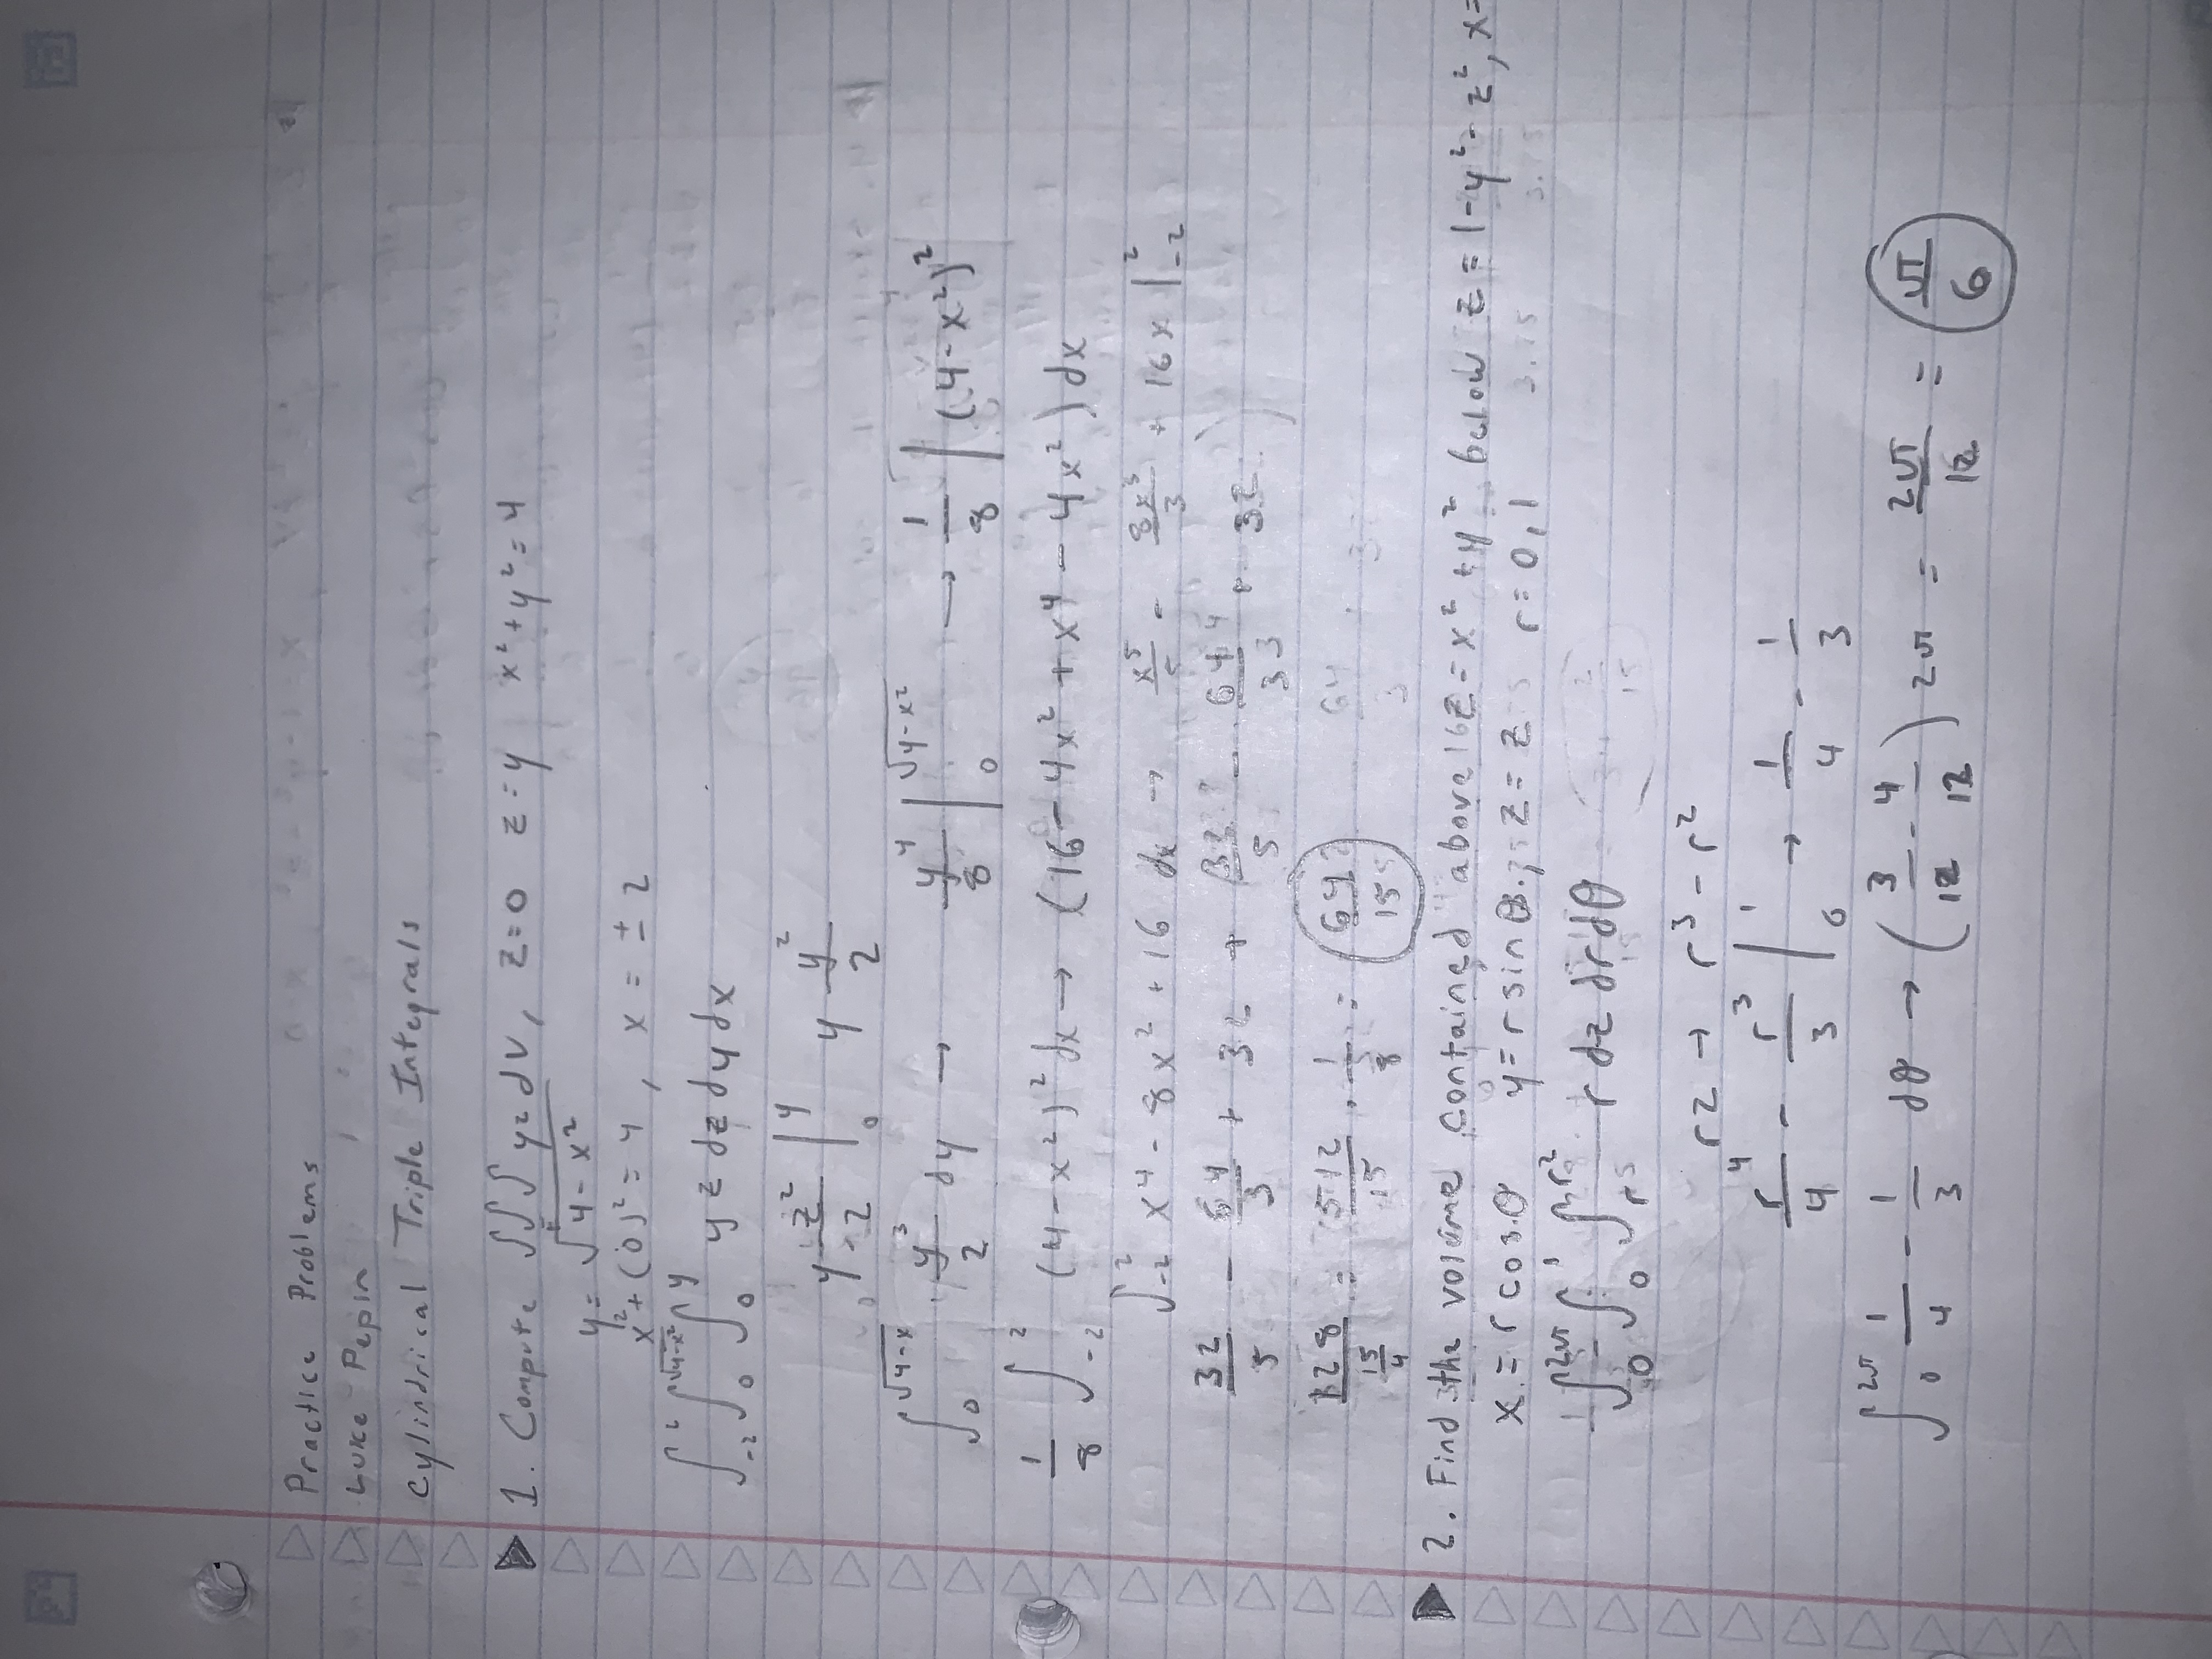 Practice Problems
Luke Pepin
Cylindrical Triple Integrals
1. Compute ∫∫∫ yz dV, z=0 z=y x²+y²=4
y = √(4-x²)
x²+(0)²=4, x = ± 2
∫₋₂² ∫₀^√(4-x²) ∫₀^y yz dz dy dx
y z²/2 |₀^y y y²/2
∫₀^√(4-x) y³/2 dy → y⁴/8 |₀^√(4-x²) → 1/8 | (4-x²)²
1/8 ∫₋₂² (4-x²)² dx → (16-4x²+x⁴-4x²) dx
∫₋₂² x⁴-8x²+16 dx → x⁵/5 - 8x³/3 + 16x |₋₂²
32/5 - 64/3 + 32 + 32/5 - 64/3 + 32
128/(15/4) = 512/15 · 1/8 = 64/15
2. Find the volume contained above z=x²+y² below z=1-y²-z², x=
x = r cos θ y = r sin θ, z = z r = 0, 1
∫₀^2π ∫₀¹ ∫ r dz dr dθ
rz → r³-r²
r⁴/4 - r³/3 |₀¹ → 1/4 - 1/3
∫₀^2π 1/4 - 1/3 dθ → (3/12 - 4/12) 2π = 2π/12 = π/6